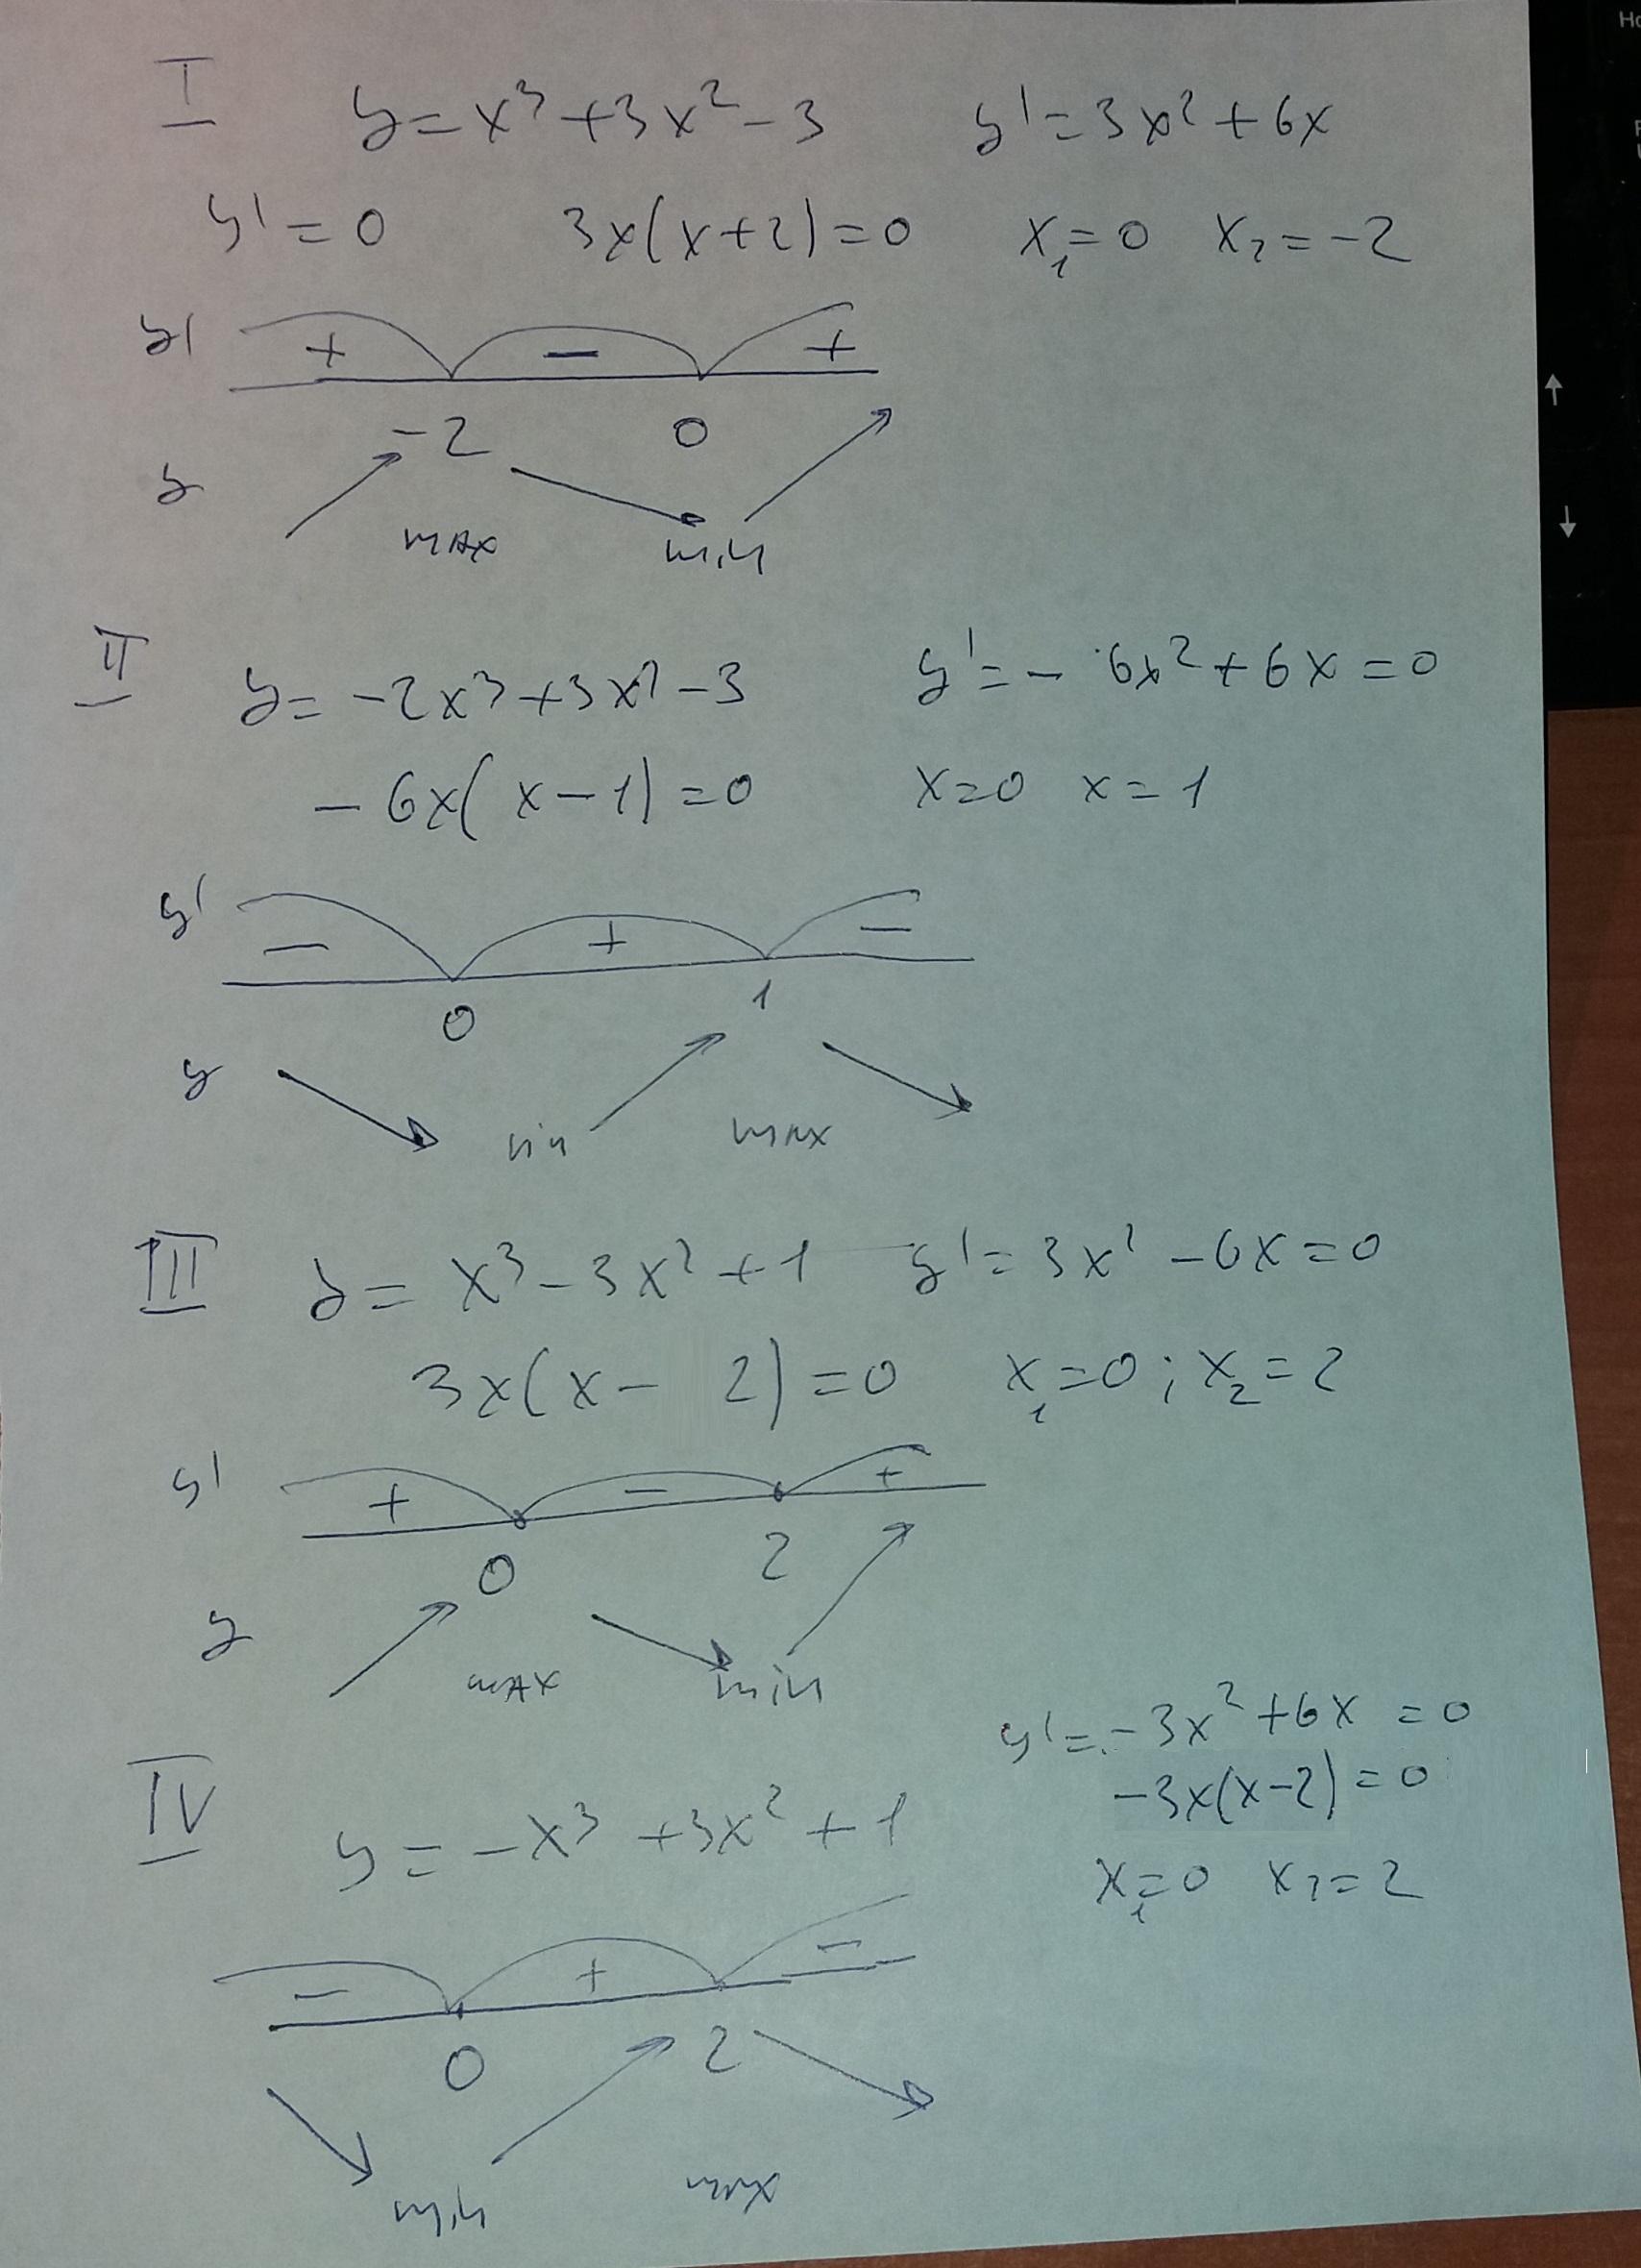 I y = x³ + 3x² - 3 y' = 3x² + 6x
y' = 0 3x(x+2) = 0 x₁ = 0 x₂ = -2
y' + - +
-2 0
y max min
II y = -2x³ + 3x² - 3 y' = -6x² + 6x = 0
-6x(x-1) = 0 x = 0 x = 1
y' - + -
0 1
y min max
III y = x³ - 3x² + 1 y' = 3x² - 6x = 0
3x(x- 2) = 0 x₁ = 0; x₂ = 2
y' + - +
0 2
y max min
IV y = -x³ + 3x² + 1
y' = -3x² + 6x = 0
-3x(x-2) = 0
x₁ = 0 x₂ = 2
- + -
0 2
min max